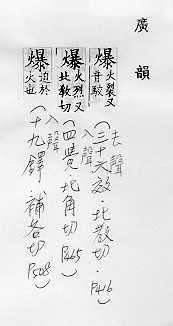 廣韻
爆火裂又音駮
去聲
(三十六效.北教切.P416
爆火烈又北教切
入聲
(四覺.北角切P465
爆迫於火也
入聲
(十九鐸.補各切P508